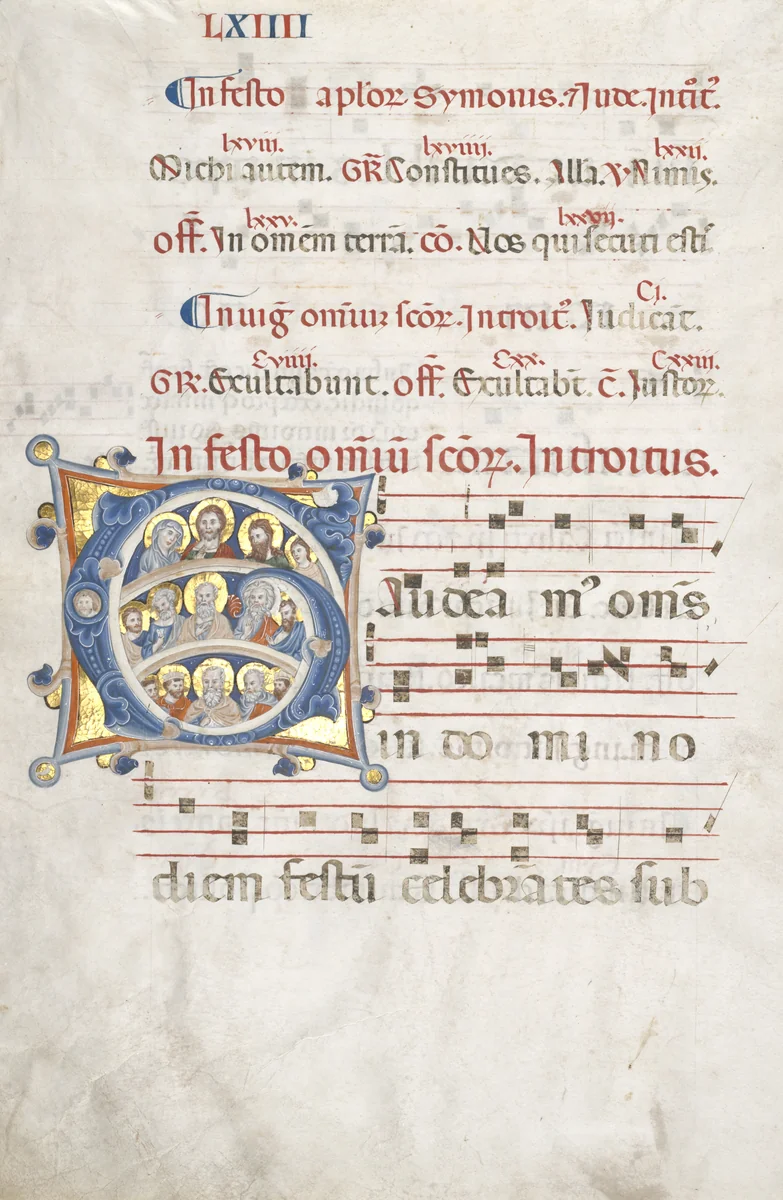 LXIIII
In festo aplor̄ Symonis. ⁊ Iude. Introit᷒.
lxviii. lxviiii. lxxii.
Michi autem. GR̄ Constitues. Alla. V Nimis.
lxxv. lxxvii.
off̄. In om̄em terrā. cō. Nos qui secuti esti᷒
Ci.
In uiḡ om̄iuꝫ scōꝝ. Introit᷒. Iudicāt.
Cviiii. Cxx. Cxxiii.
GR. Exultabunt. off̄. Exultabt̄. c̄. Iustoꝝ.
In festo om̄iū scōꝝ. Introitus.
GAudea m᷒ om̄s
in do mi no
diem festū celebrātes sub